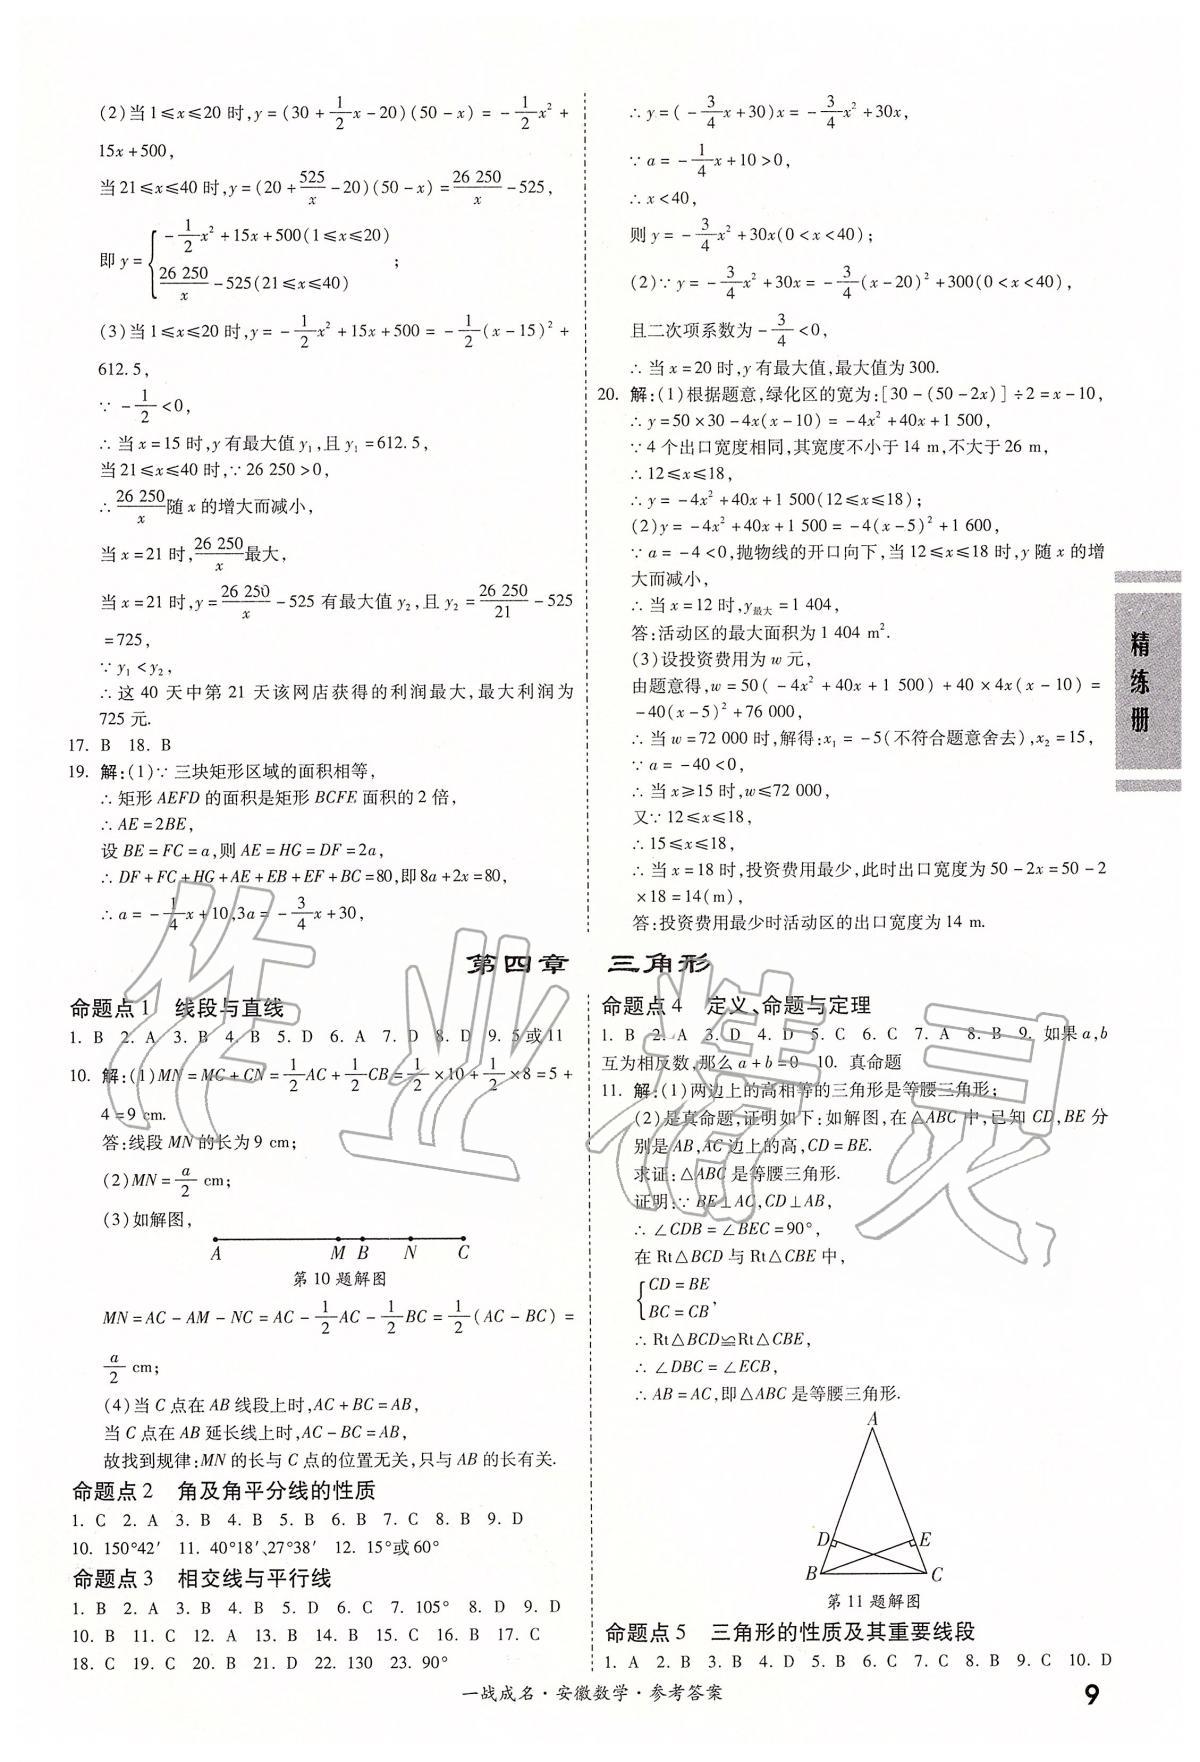 (2)当1≤x≤20时,y=(30+1/2x-20)(50-x)=-1/2x²+
15x+500,
当21≤x≤40时,y=(20+525/x-20)(50-x)=26 250/x-525,
即y={-1/2x²+15x+500(1≤x≤20)
26 250/x-525(21≤x≤40);
(3)当1≤x≤20时,y=-1/2x²+15x+500=-1/2(x-15)²+
612.5,
∵-1/2<0,
∴当x=15时,y有最大值y₁,且y₁=612.5,
当21≤x≤40时,∵26 250>0,
∴26 250/x随x的增大而减小,
当x=21时,26 250/x最大,
当x=21时,y=26 250/x-525有最大值y₂,且y₂=26 250/21-525
=725,
∵y₁<y₂,
∴这40天中第21天该网店获得的利润最大,最大利润为
725元.
17. B 18. B
19. 解:(1)∵三块矩形区域的面积相等,
∴矩形AEFD的面积是矩形BCFE面积的2倍,
∴AE=2BE,
设BE=FC=a,则AE=HG=DF=2a,
∴DF+FC+HG+AE+EB+EF+BC=80,即8a+2x=80,
∴a=-1/4x+10,3a=-3/4x+30,
∴y=(-3/4x+30)x=-3/4x²+30x,
∵a=-1/4x+10>0,
∴x<40,
则y=-3/4x²+30x(0<x<40);
(2)∵y=-3/4x²+30x=-3/4(x-20)²+300(0<x<40),
且二次项系数为-3/4<0,
∴当x=20时,y有最大值,最大值为300.
20. 解:(1)根据题意,绿化区的宽为:[30-(50-2x)]÷2=x-10,
∴y=50×30-4x(x-10)=-4x²+40x+1 500,
∵4个出口宽度相同,其宽度不小于14 m,不大于26 m,
∴12≤x≤18,
∴y=-4x²+40x+1 500(12≤x≤18);
(2)y=-4x²+40x+1 500=-4(x-5)²+1 600,
∵a=-4<0,抛物线的开口向下,当12≤x≤18时,y随x的增
大而减小,
∴当x=12时,y最大=1 404,
答:活动区的最大面积为1 404 m².
(3)设投资费用为w元,
由题意得,w=50(-4x²+40x+1 500)+40×4x(x-10)=
-40(x-5)²+76 000,
∴当w=72 000时,解得:x₁=-5(不符合题意舍去),x₂=15,
∵a=-40<0,
∴当x≥15时,w≤72 000,
又∵12≤x≤18,
∴15≤x≤18,
∴当x=18时,投资费用最少,此时出口宽度为50-2x=50-2
×18=14(m),
答:投资费用最少时活动区的出口宽度为14 m.
精练册
第四章 三角形
命题点1 线段与直线
1. B 2. A 3. B 4. B 5. D 6. A 7. D 8. D 9. 5或11
10. 解:(1)MN=MC+CN=1/2AC+1/2CB=1/2×10+1/2×8=5+
4=9 cm.
答:线段MN的长为9 cm;
(2)MN=a/2 cm;
(3)如解图,
A M B N C
第10题解图
MN=AC-AM-NC=AC-1/2AC-1/2BC=1/2(AC-BC)=
a/2 cm;
(4)当C点在AB线段上时,AC+BC=AB,
当C点在AB延长线上时,AC-BC=AB,
故找到规律:MN的长与C点的位置无关,只与AB的长有关.
命题点2 角及角平分线的性质
1. C 2. A 3. B 4. B 5. B 6. B 7. C 8. B 9. D
10. 150°42′ 11. 40°18′、27°38′ 12. 15°或60°
命题点3 相交线与平行线
1. B 2. A 3. B 4. B 5. D 6. C 7. 105° 8. D 9. D
10. B 11. C 12. A 13. B 14. B 15. C 16. B 17. C
18. C 19. C 20. B 21. A 22. 130 23. 90°
命题点4 定义、命题与定理
1. B 2. A 3. D 4. D 5. C 6. C 7. A 8. B 9. 如果a,b
互为相反数,那么a+b=0 10. 真命题
11. 解:(1)两边上的高相等的三角形是等腰三角形;
(2)是真命题,证明如下:如解图,在△ABC中,已知CD,BE分
别是AB,AC边上的高,CD=BE.
求证:△ABC是等腰三角形.
证明:∵BE⊥AC,CD⊥AB,
∴∠CDB=∠BEC=90°,
在Rt△BCD与Rt△CBE中,
{CD=BE
BC=CB,
∴Rt△BCD≌Rt△CBE,
∴∠DBC=∠ECB,
∴AB=AC,即△ABC是等腰三角形.
A
D E
B C
第11题解图
命题点5 三角形的性质及其重要线段
1. A 2. B 3. B 4. D 5. B 6. C 7. C 8. B 9. C 10. D
一战成名·安徽数学·参考答案
9
作业精灵